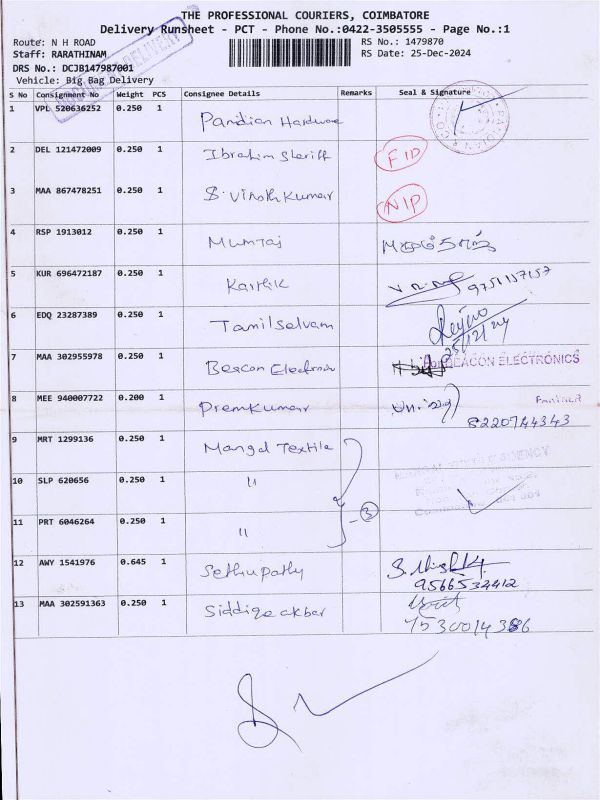 THE PROFESSIONAL COURIERS, COIMBATORE
Delivery Runsheet - PCT - Phone No.:0422-3505555 - Page No.:1
Route: N H ROAD
RS No.: 1479870
Staff: RARATHINAM
RS Date: 25-Dec-2024
DRS No.: DCJB147987001
Vehicle: Big Bag Delivery
S No Consignment No Weight PCS Consignee Details Remarks Seal & Signature
1 VPL 520636252 0.250 1 Pandian Hardware
2 DEL 121472009 0.250 1 Ibrahim Sheriff FID
3 MAA 867478251 0.250 1 S. Vinoth Kumar NIP
4 RSP 1913012 0.250 1 Mumtaj
5 KUR 696472187 0.250 1 Karthik 9751157157
6 EDQ 23287389 0.250 1 Tamilselvam 25/12/24
7 MAA 302955978 0.250 1 Beacon Electronics For BEACON ELECTRONICS
PARTNER
8 MEE 940007722 0.200 1 Premkumar 8220744343
9 MRT 1299136 0.250 1 Mangal Textile
10 SLP 620656 0.250 1 "
11 PRT 6046264 0.250 1 " 3
12 AWY 1541976 0.645 1 Sethupathy 9566532412
13 MAA 302591363 0.250 1 Siddiqe akbar 7530014386